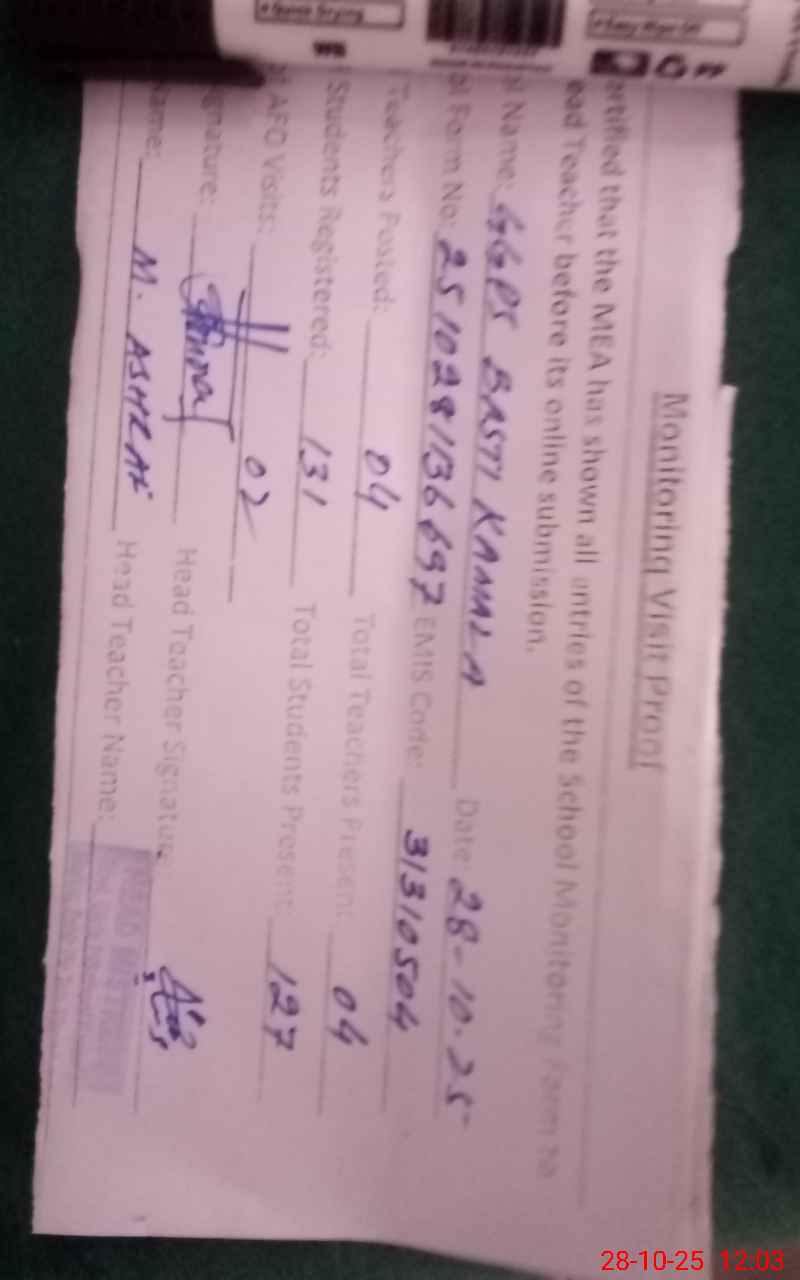 Quick Drying
Monitoring Visit Proof
ertified that the MEA has shown all entries of the School Monitoring Form to
ead Teacher before its online submission.
ol Name: GGPS BASTI KAMAL A Date: 28-10-25
al Form No: 251028136697 EMIS Code: 31310504
Teachers Posted: 04 Total Teachers Present: 04
Students Registered: 131 Total Students Present: 127
AEO Visits: 02
gnature: Head Teacher Signature:
ame: M. ASHRAF Head Teacher Name:
HEAD MISTRESS
28-10-25 12:03